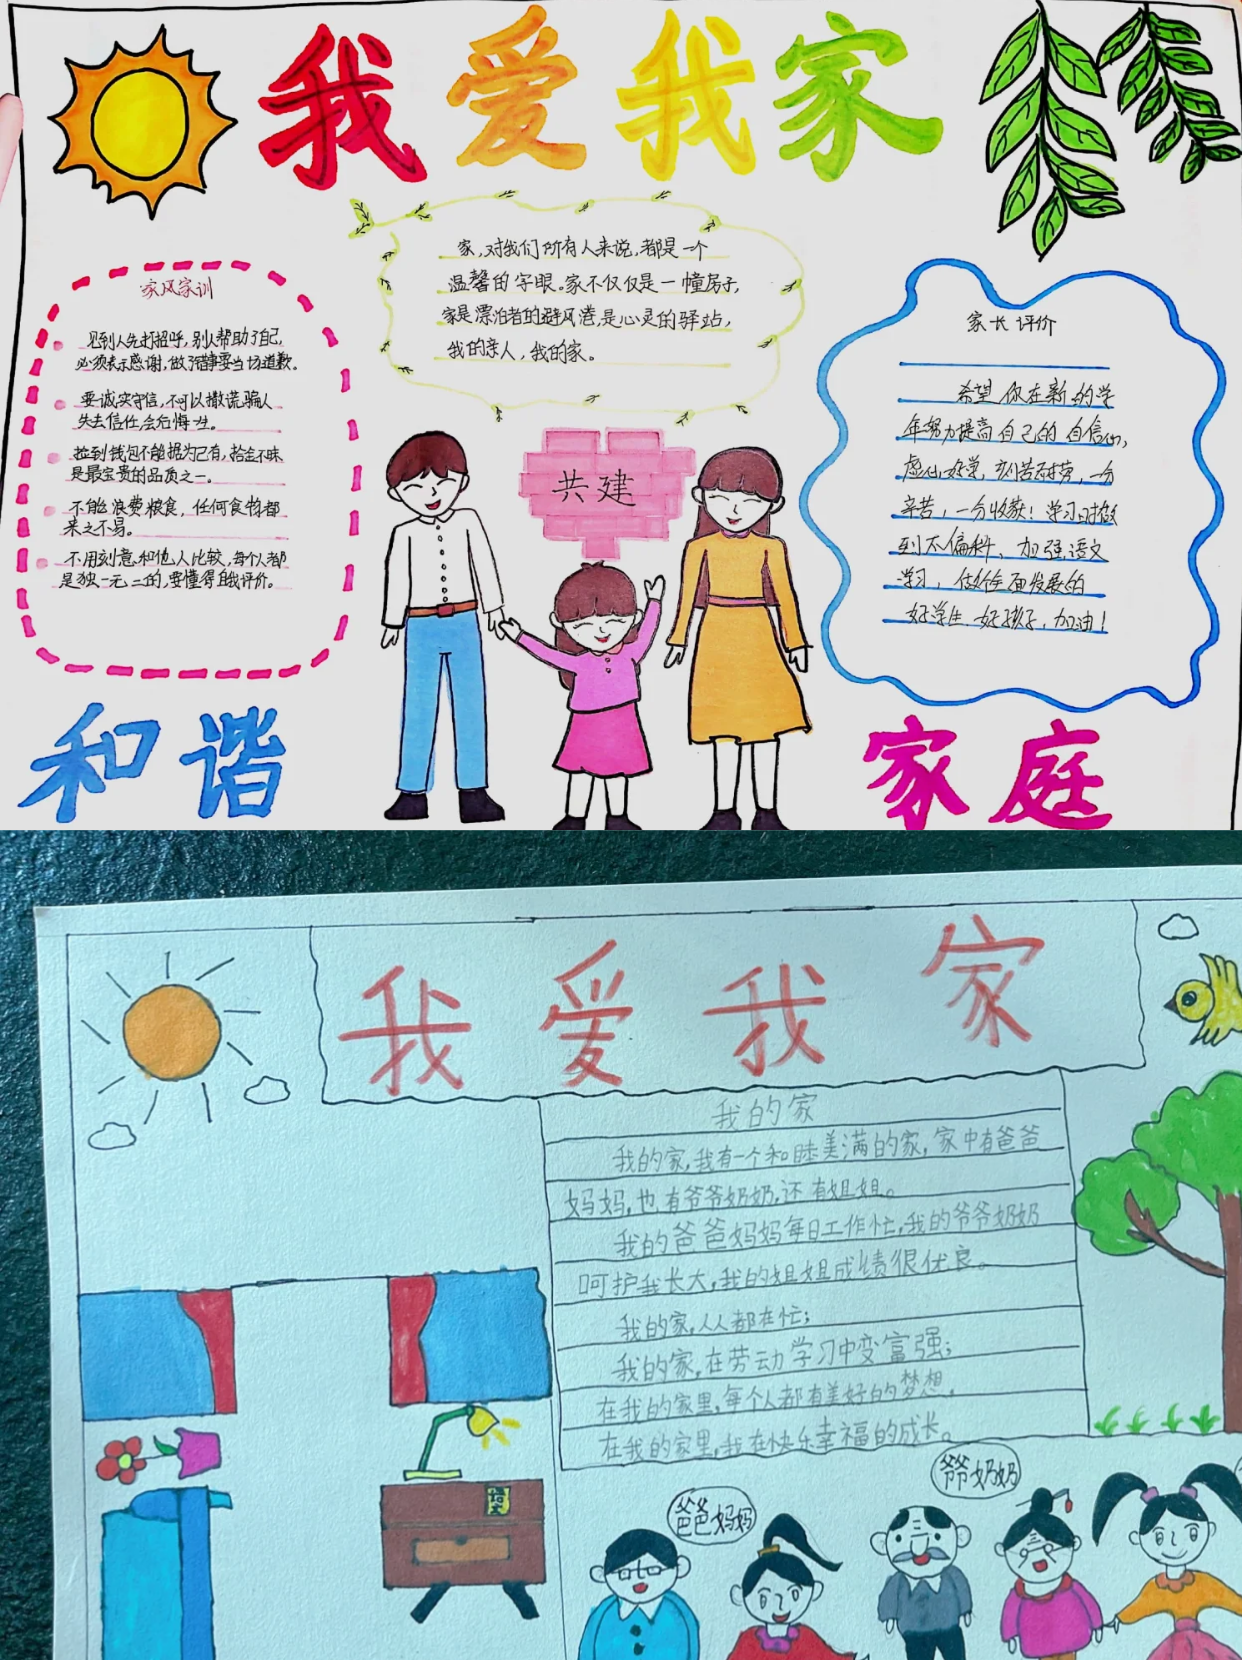 我爱我家
家,对我们所有人来说,都是一个
温馨的字眼。家不仅仅是一幢房子,
家是漂泊者的避风港,是心灵的驿站,
我的亲人,我的家。
家风家训
见到人先打招呼,别人帮助了自己,
必须表示感谢,做了错事要当场道歉。
要诚实守信,不可以撒谎骗人
失去信任,会后悔一生。
捡到钱包不能据为己有,拾金不昧
是最宝贵的品质之一。
不能浪费粮食,任何食物都
来之不易。
不用刻意和他人比较,每个人都
是独一无二的,要懂得自我评价。
家长评价
希望你在新的学
年努力提高自己的自信心,
虚心好学,刻苦耐劳,一分
辛苦,一分收获!学习时做
到不偏科、加强语文
学习,做好全面发展的
好学生、好孩子,加油!
共建
和谐
家庭
我爱我家
我的家
我的家,我有一个和睦美满的家,家中有爸爸
妈妈,也有爷爷奶奶,还有姐姐。
我的爸爸妈妈每日工作忙,我的爷爷奶奶
呵护我长大,我的姐姐成绩很优良。
我的家,人人都在忙;
我的家,在劳动学习中变富强;
在我的家里,每个人都有美好的梦想,
在我的家里,我在快乐幸福的成长。
爷爷奶奶
爸爸妈妈
语文